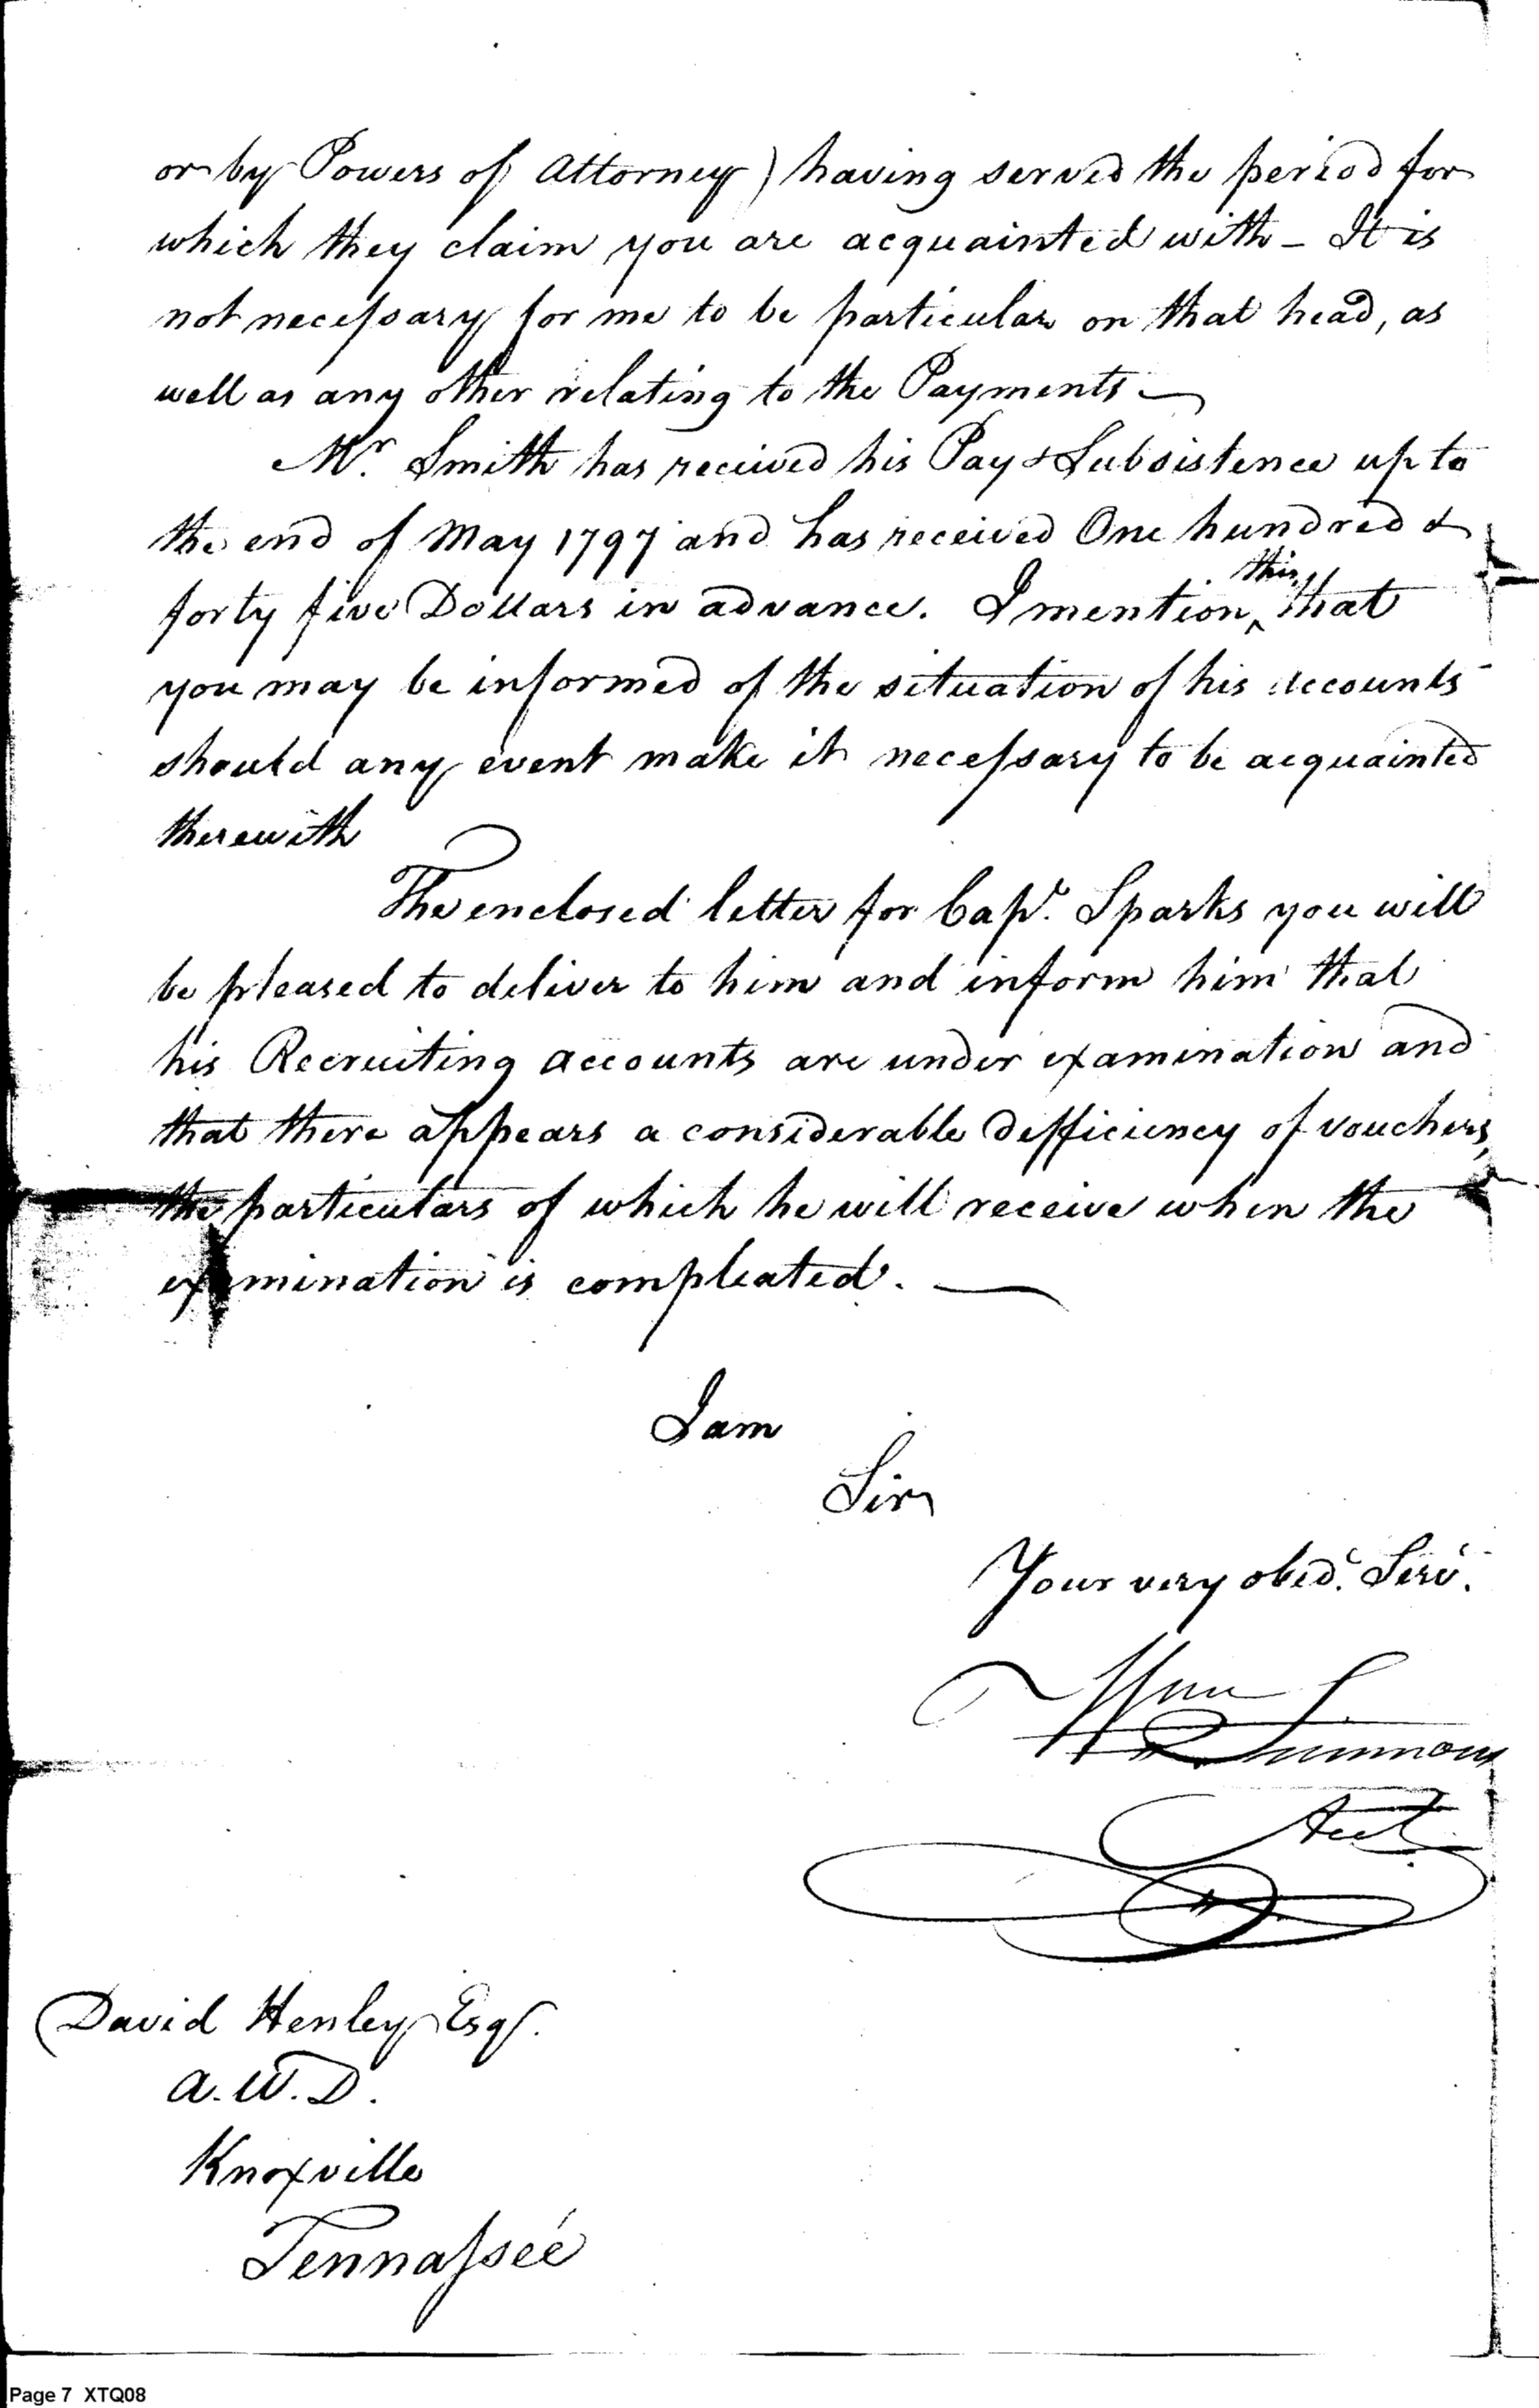 or by Powers of Attorney) having served the period for
which they claim you are acquainted with – It is
not neceſsary for me to be particular on that head, as
well as any other relating to the Payments –
Mr. Smith has received his Pay & Subsistence up to
the end of May 1797 and has received One hundred &
forty five Dollars in advance. I mention ^this that
you may be informed of the situation of his accounts
should any event make it neceſsary to be acquainted
therewith
The enclosed letter for Capt. Sparks you will
be pleased to deliver to him and inform him that
his Recruiting accounts are under examination and
that there appears a considerable defficiency of vouchers,
the particulars of which he will receive when the
examination is compleated. —
I am
Sir
Your very obedt. Servt.
Wm Simmons
Acct
David Henley Esqr.
A.W.D.
Knoxville
Tennaſseé
Page 7 XTQ08